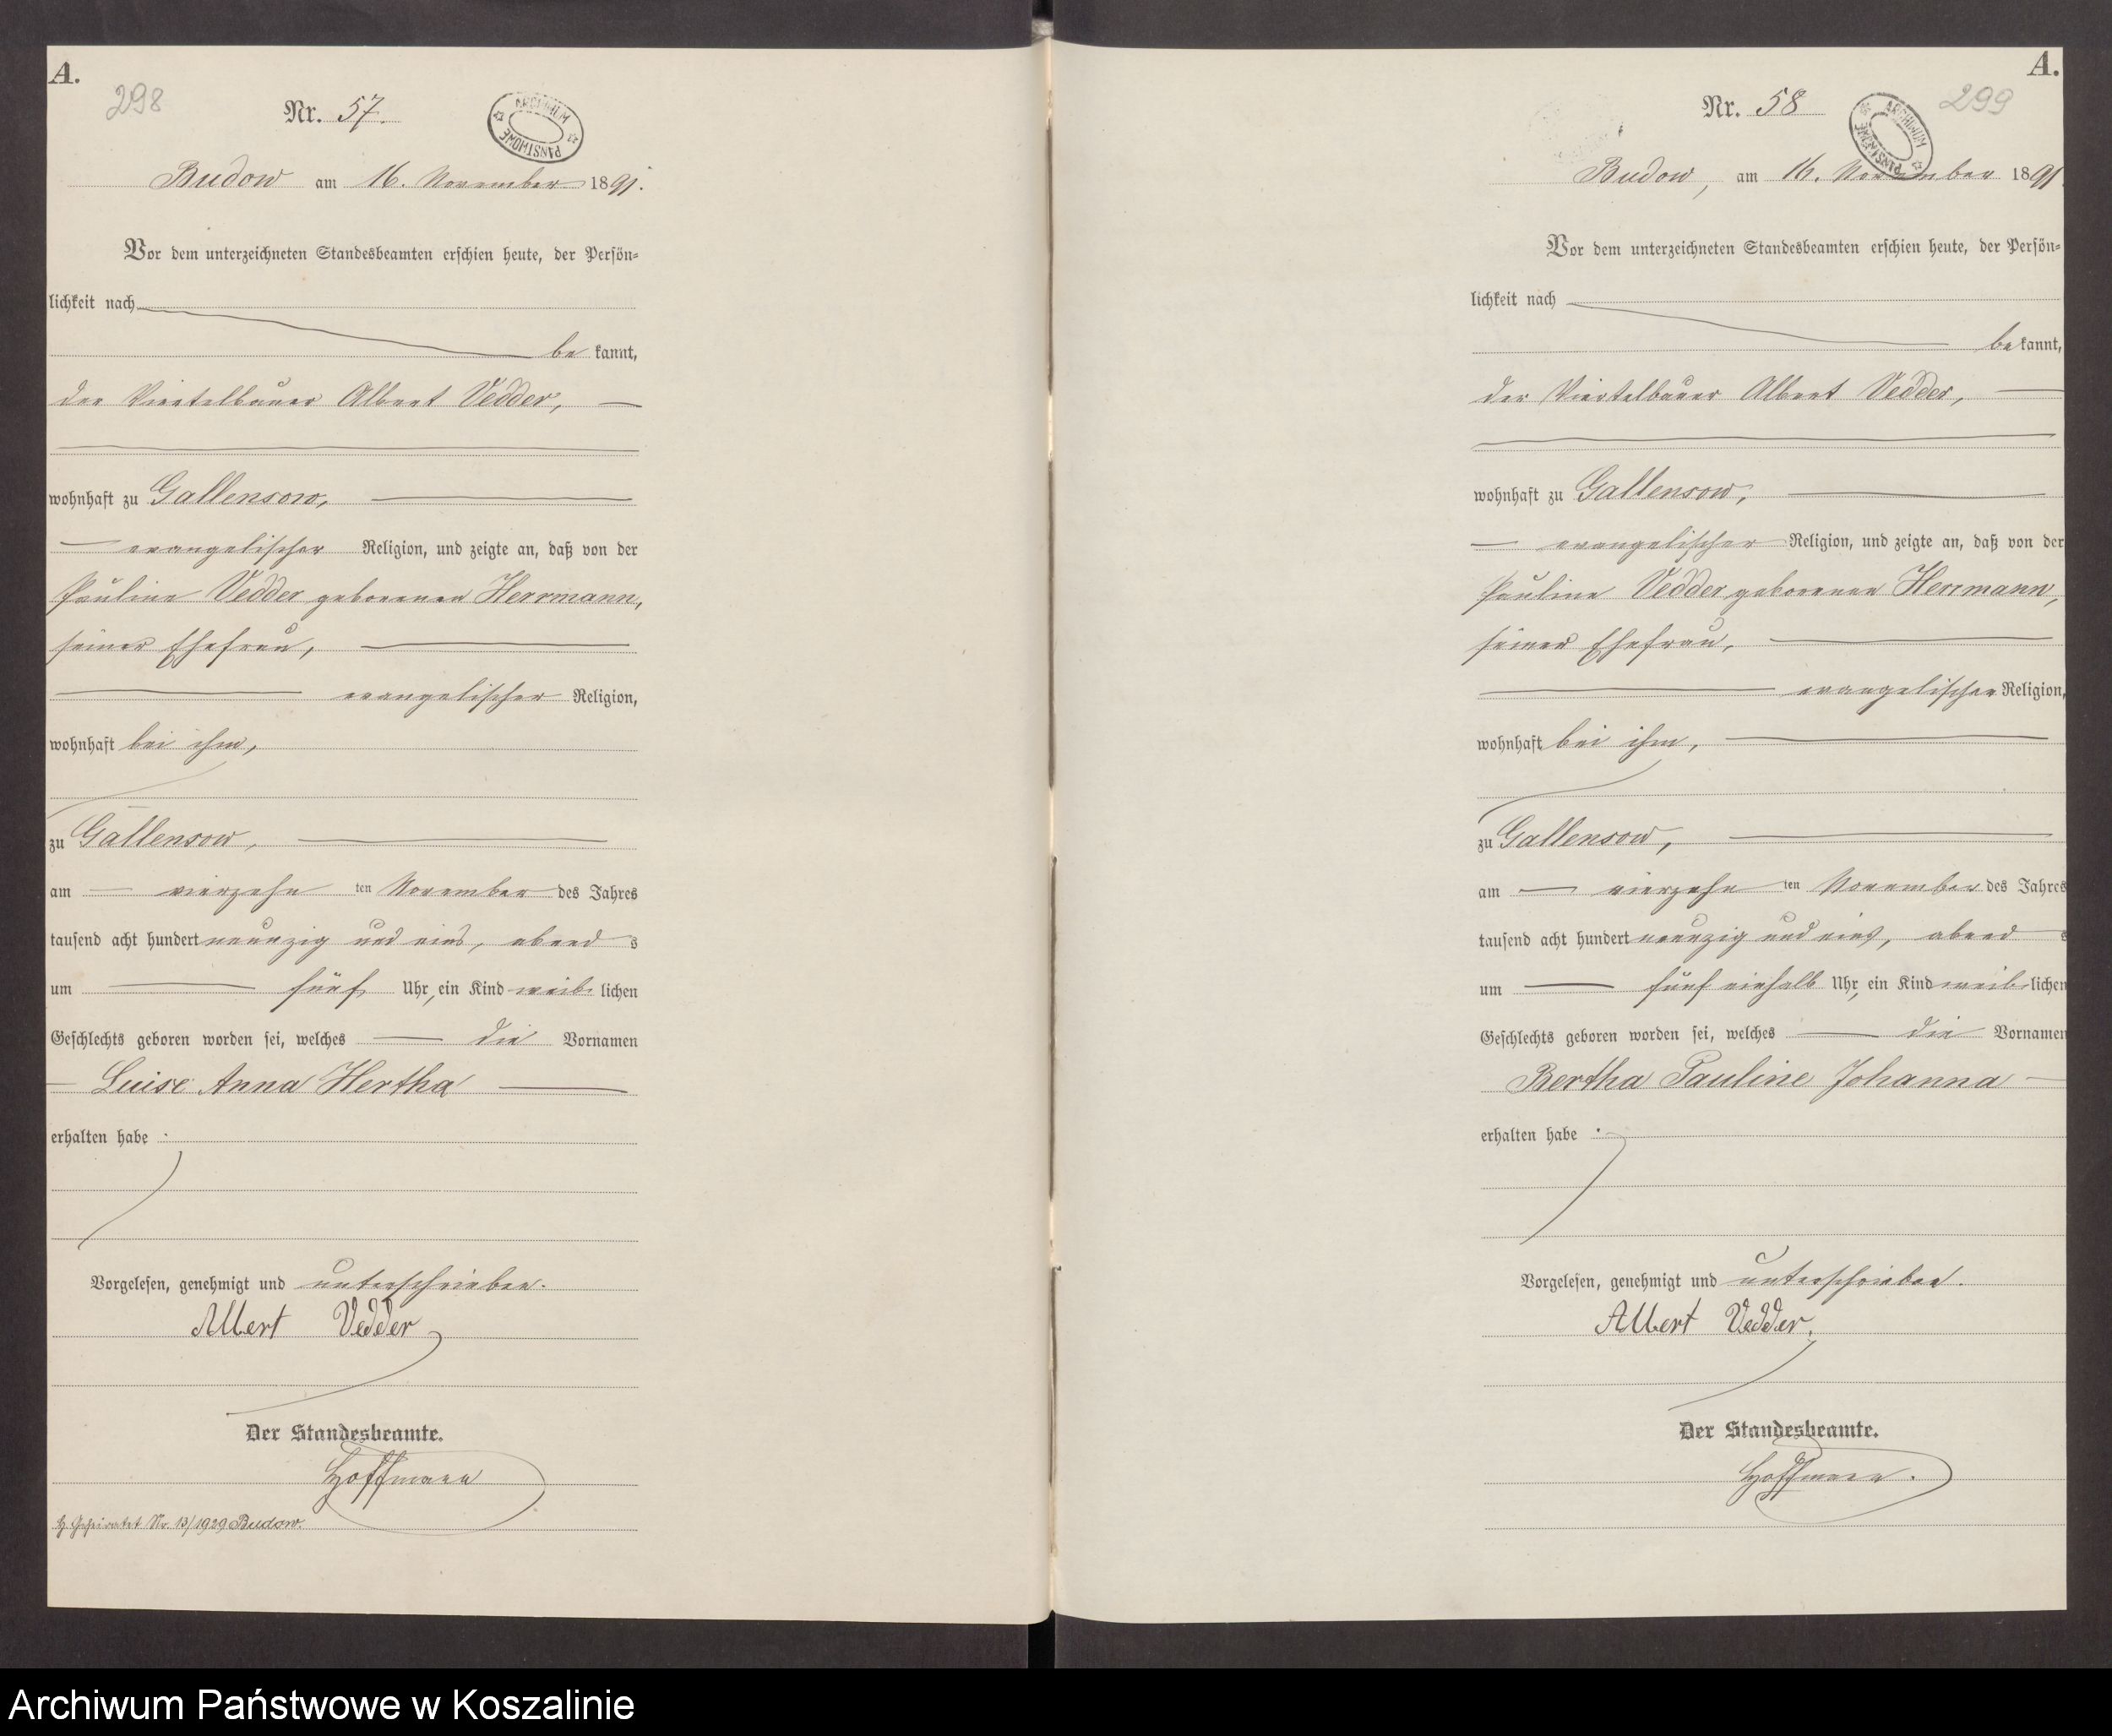 A.
298
Nr. 57.
ARCHIWUM PAŃSTWOWE
Budow am 16. November 1891.
Vor dem unterzeichneten Standesbeamten erschien heute, der Persön-
lichkeit nach
be kannt,
der Viertelbauer Albert Vedder,
wohnhaft zu Gallensow,
evangelischer Religion, und zeigte an, daß von der
Pauline Vedder geborenen Herrmann,
seiner Ehefrau,
evangelischer Religion,
wohnhaft bei ihm,
zu Gallensow,
am vierzehn ten November des Jahres
tausend acht hundert neunzig und eins, abend s
um fünf Uhr, ein Kind weib lichen
Geschlechts geboren worden sei, welches die Vornamen
Luise Anna Hertha
erhalten habe.
Vorgelesen, genehmigt und unterschrieben.
Albert Vedder
Der Standesbeamte.
Hoffmann
Geheiratet Nr. 13/1929 Budow.
A.
299
Nr. 58
ARCHIWUM PAŃSTWOWE
Budow, am 16. November 1891.
Vor dem unterzeichneten Standesbeamten erschien heute, der Persön-
lichkeit nach
be kannt,
der Viertelbauer Albert Vedder,
wohnhaft zu Gallensow,
evangelischer Religion, und zeigte an, daß von der
Pauline Vedder geborenen Herrmann,
seiner Ehefrau,
evangelischer Religion,
wohnhaft bei ihm,
zu Gallensow,
am vierzehn ten November des Jahres
tausend acht hundert neunzig und eins, abend s
um fünf einhalb Uhr, ein Kind weib lichen
Geschlechts geboren worden sei, welches die Vornamen
Bertha Pauline Johanna
erhalten habe.
Vorgelesen, genehmigt und unterschrieben.
Albert Vedder.
Der Standesbeamte.
Hoffmann.
Archiwum Państwowe w Koszalinie